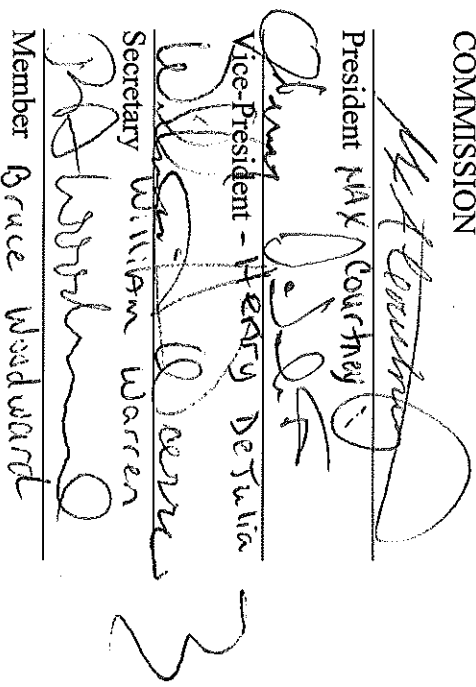 COMMISSION
President MAX Courtney
Vice-President - HENRY DeJulia
Secretary William Warren
Member Bruce Woodward